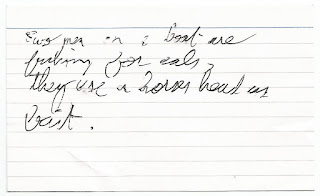 Two men on a boat are
fishing for eals,
they use a horses head as
bait.